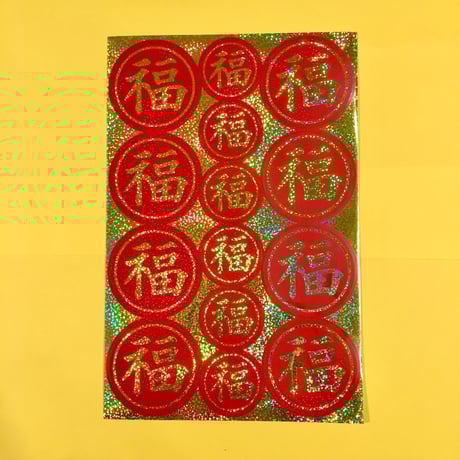 福
福
福
福
福
福
福
福
福
福
福
福
福
福